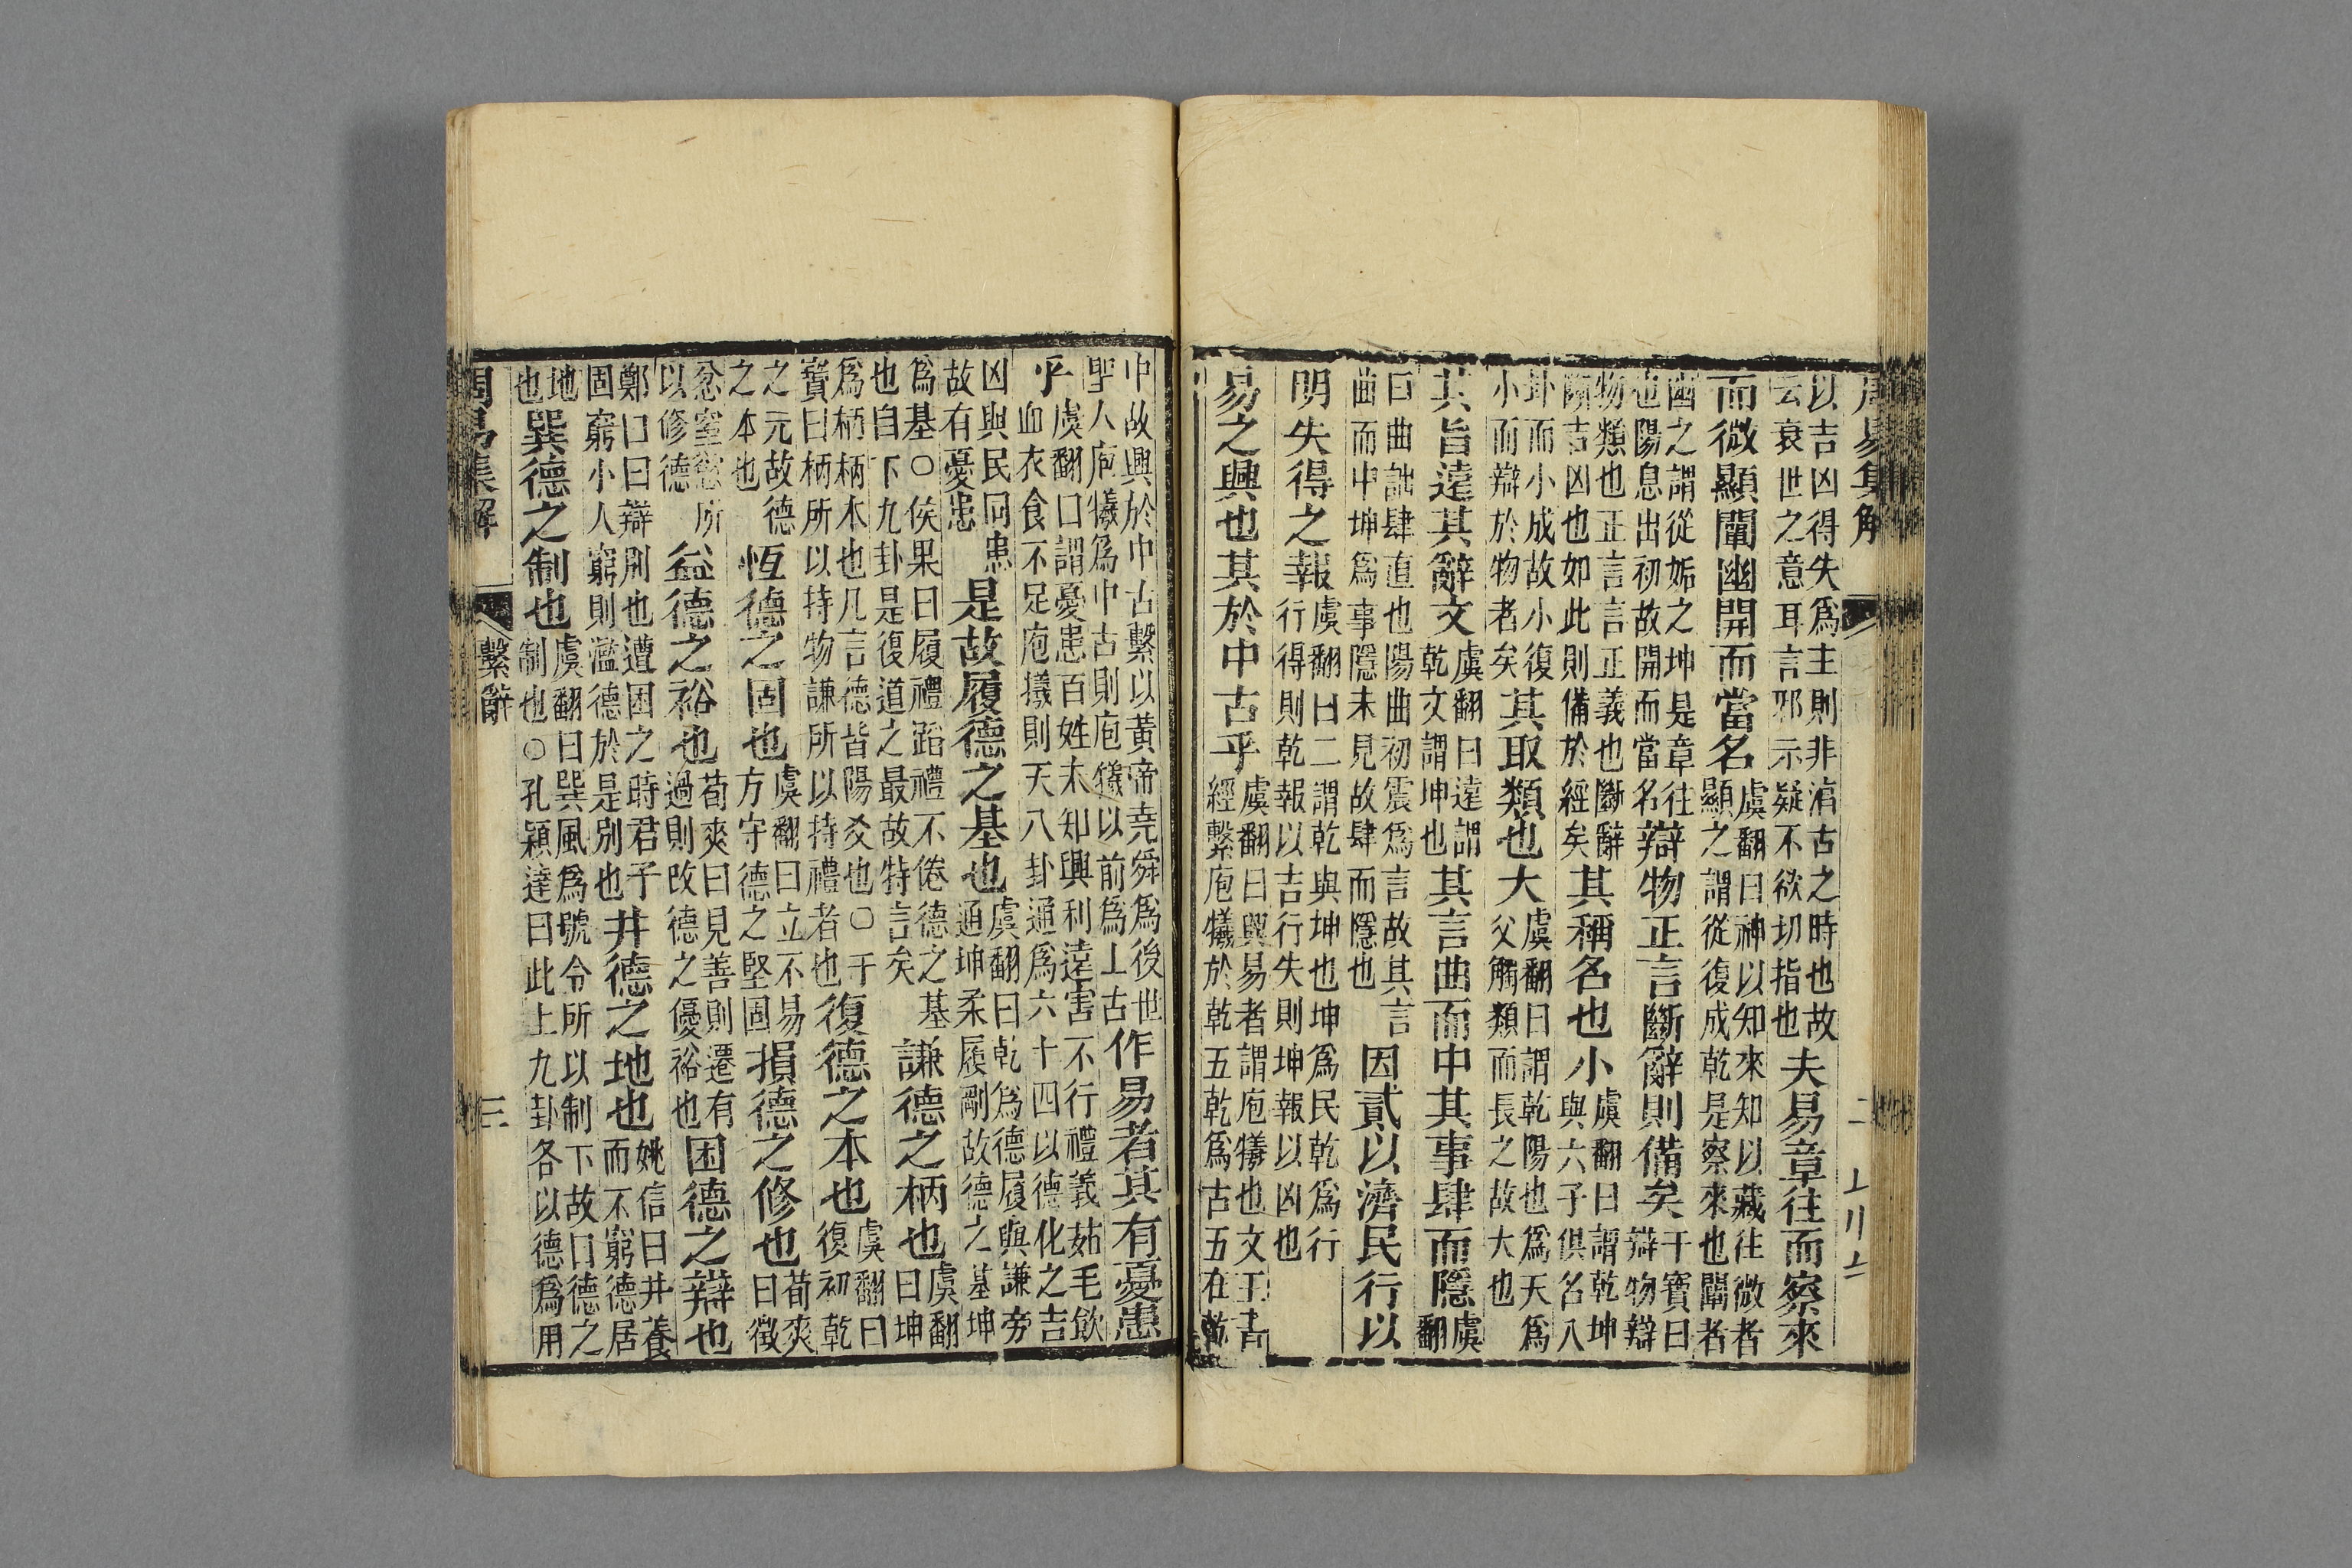 周易集解　二
以吉凶得失爲主則非淳古之時也故云衰世之意耳言邪示疑不欲切指也夫易章往而察來
而微顯闡幽開而當名虞翻曰神以知來知以藏往微者顯之謂從復成乾是察來也闡者
幽之謂從姤之坤是章往也陽息出初故開而當名辯物正言斷辭則備矣干寶曰辯物辯
物類也正言言正義也斷辭斷吉凶也如此則備於經矣其稱名也小虞翻曰謂乾坤與六子俱名八
卦而小成故小復小而辯於物者矣其取類也大虞翻曰謂乾陽也爲天爲父觸類而長之故大也
其旨遠其辭文虞翻曰遠謂乾文謂坤也其言曲而中其事肆而隱虞翻
曰曲詘肆直也陽曲初震爲言故其言曲而中坤爲事隱未見故肆而隱也因貳以濟民行以
明失得之報虞翻曰二謂乾與坤也坤爲民乾爲行行得則乾報以吉行失則坤報以凶也
易之興也其於中古乎虞翻曰興易者謂庖犧也文王書經繫庖犧於乾五乾爲古五在乾
中故興於中古繫以黃帝堯舜爲後世聖人庖犧爲中古則庖犧以前爲上古作易者其有憂患
乎虞翻曰謂憂患百姓未知興利遠害不行禮義茹毛飲血衣食不足庖犧則天八卦通爲六十四以德化之吉
凶與民同患故有憂患是故履德之基也虞翻曰乾爲德履與謙旁通坤柔履剛故德之基坤
爲基○侯果曰履禮蹈禮不倦德之基也自下九卦是復道之最故特言矣謙德之柄也虞翻曰坤
爲柄柄本也凡言德皆陽爻也○干寶曰柄所以持物謙所以持禮者也復德之本也虞翻曰復初乾
之元故德之本也恆德之固也虞翻曰立不易方守德之堅固損德之修也荀爽曰徵
忿窒慾所以修德益德之裕也荀爽曰見善則遷有過則改德之優裕也困德之辯也
鄭口曰辯別也遭困之時君子固窮小人窮則濫德於是別也井德之地也姚信曰井養而不窮德居
地也巽德之制也虞翻曰巽風爲號令所以制下故曰德之制也○孔穎達曰此上九卦各以德爲用
周易集解　繫辭　三